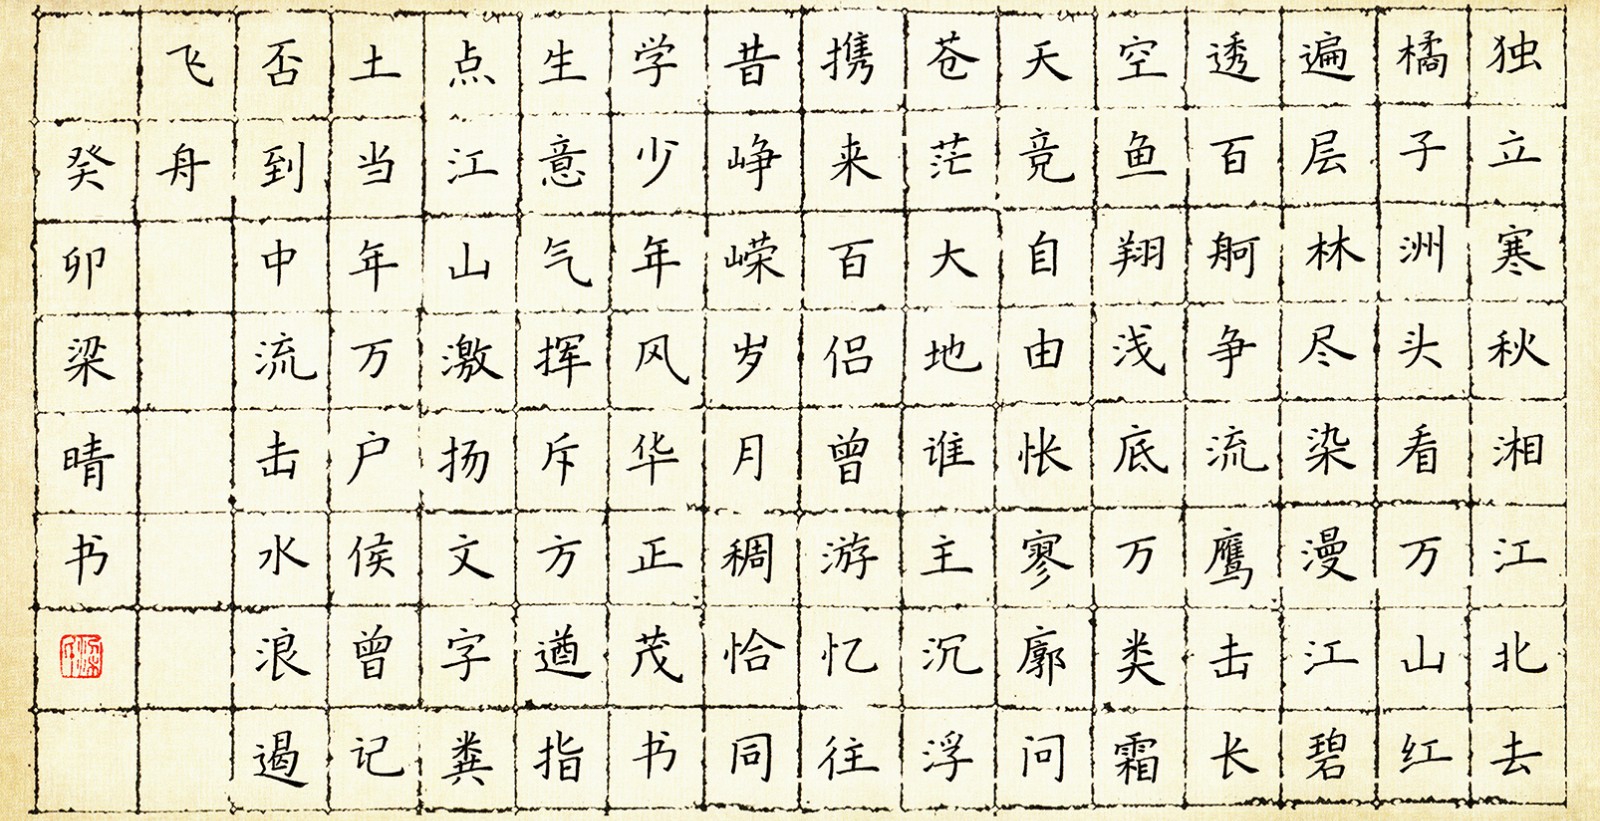 独立寒秋湘江北去
橘子洲头看万山红
遍层林尽染漫江碧
透百舸争流鹰击长
空鱼翔浅底万类霜
天竞自由怅寥廓问
苍茫大地谁主沉浮
携来百侣曾游忆往
昔峥嵘岁月稠恰同
学少年风华正茂书
生意气挥斥方遒指
点江山激扬文字粪
土当年万户侯曾记
否到中流击水浪遏
飞舟
癸卯梁晴书